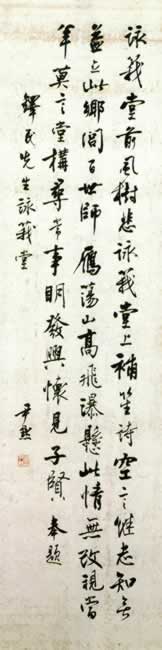 詠莪堂前風樹悲詠莪堂上補笙詩空言繼志知無
益立此鄉閭百世師雁蕩山高飛瀑懸此情無改視當
年莫言堂構尋常事明發興懷見子賢奉題
鐸民先生詠莪堂
尹默